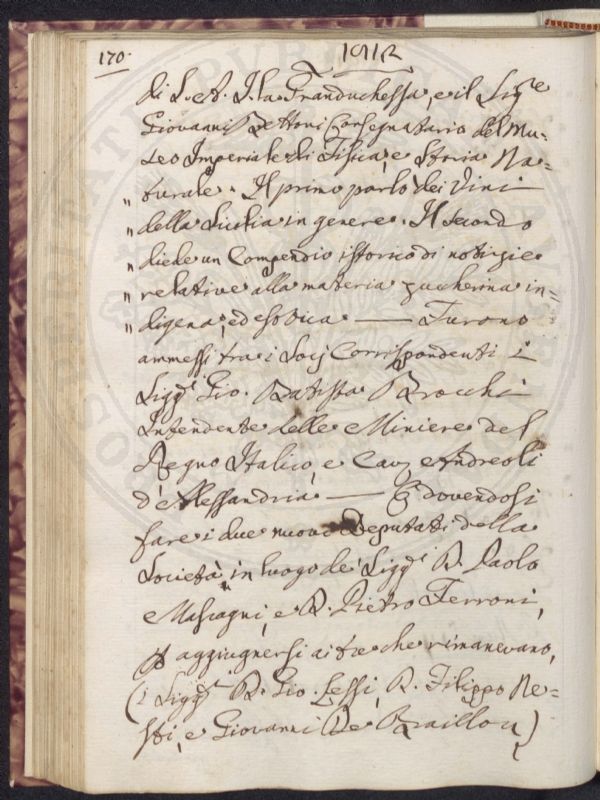 170.
1812
di S. A. I. la Granduchessa, e il Sigre
Giovanni Bettoni Consegnatario del Mu-
seo Imperiale di Fisica, e Storia Na-
" turale. Il primo parlò dei Vini
" della Sicilia in genere. Il secondo
" diede un Compendio istorico di notizie
" relative alla materia zuccherina in-
" digena, ed esotica — Furono
ammessi tra i Socj Corrispondenti i
Sigg.i Gio. Batista Brocchi
Intendente delle Miniere del
Regno Italico, e Cav. Andreoli
d'Alessandria — E dovendosi
fare i due nuovi Deputati della
Società, in luogo de' Sigg.i R. Paolo
Mascagni, e R. Pietro Ferroni,
aggiugnersi ai tre che rimanevano,
(i Sigg.i R. Gio. Lessi, R. Filippo Ne-
sti, e Giovanni De Baillou)